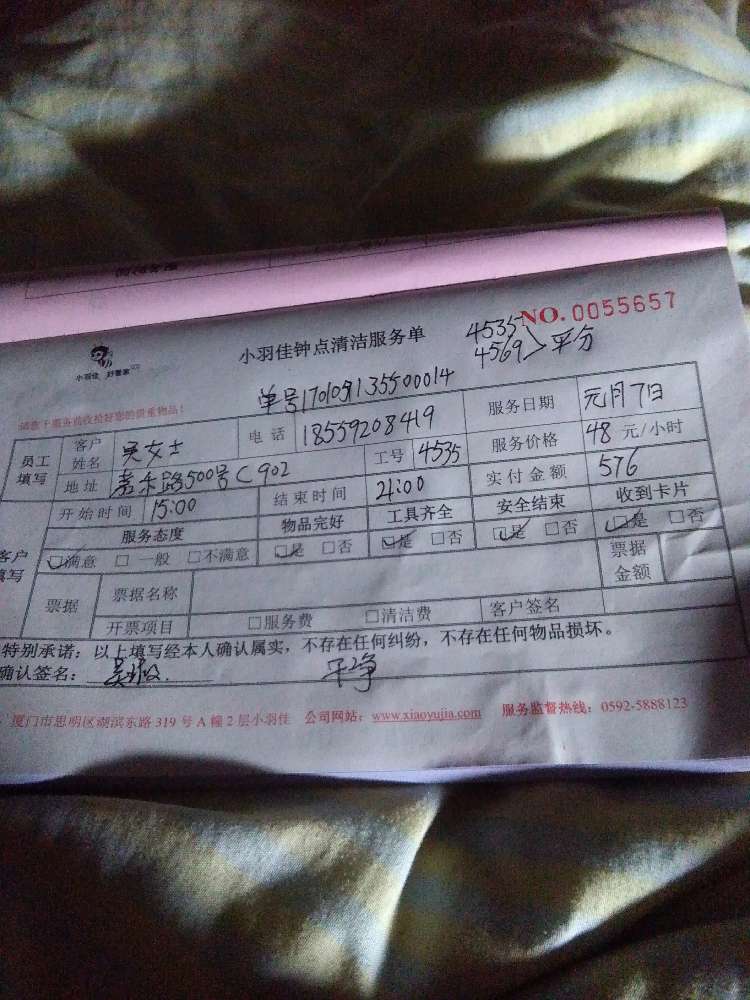 NO. 0055657
小羽佳 好管家
小羽佳钟点清洁服务单
4535
4569 > 平分
请您于服务前收拾好您的贵重物品！
员工填写 客户姓名 吴女士 电话 18559208419 服务日期 元月7日
地址 嘉禾路500号C902 工号 4535 服务价格 48 元/小时
开始时间 15:00 结束时间 21:00 实付金额 576
服务态度 物品完好 工具齐全 安全结束 收到卡片
客户填写 □满意 □一般 □不满意 □是 □否 □是 □否 □是 □否 □是 □否
票据 票据名称 票据金额
开票项目 □服务费 □清洁费 客户签名
特别承诺：以上填写经本人确认属实，不存在任何纠纷，不存在任何物品损坏。
确认签名：
厦门市思明区湖滨东路 319 号 A 幢 2 层小羽佳 公司网站：www.xiaoyujia.com 服务监督热线：0592-5888123